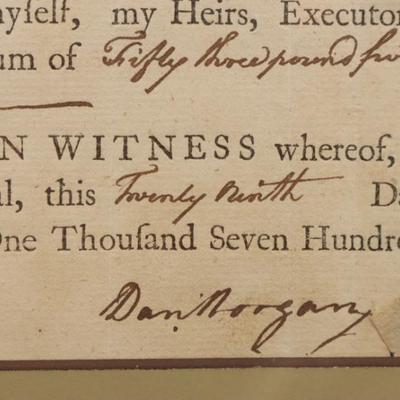 myſelf, my Heirs, Executor
um of Fifty three pound
N WITNESS whereof,
al, this Twenty Ninth Da
One Thouſand Seven Hundre
Dan Morgan